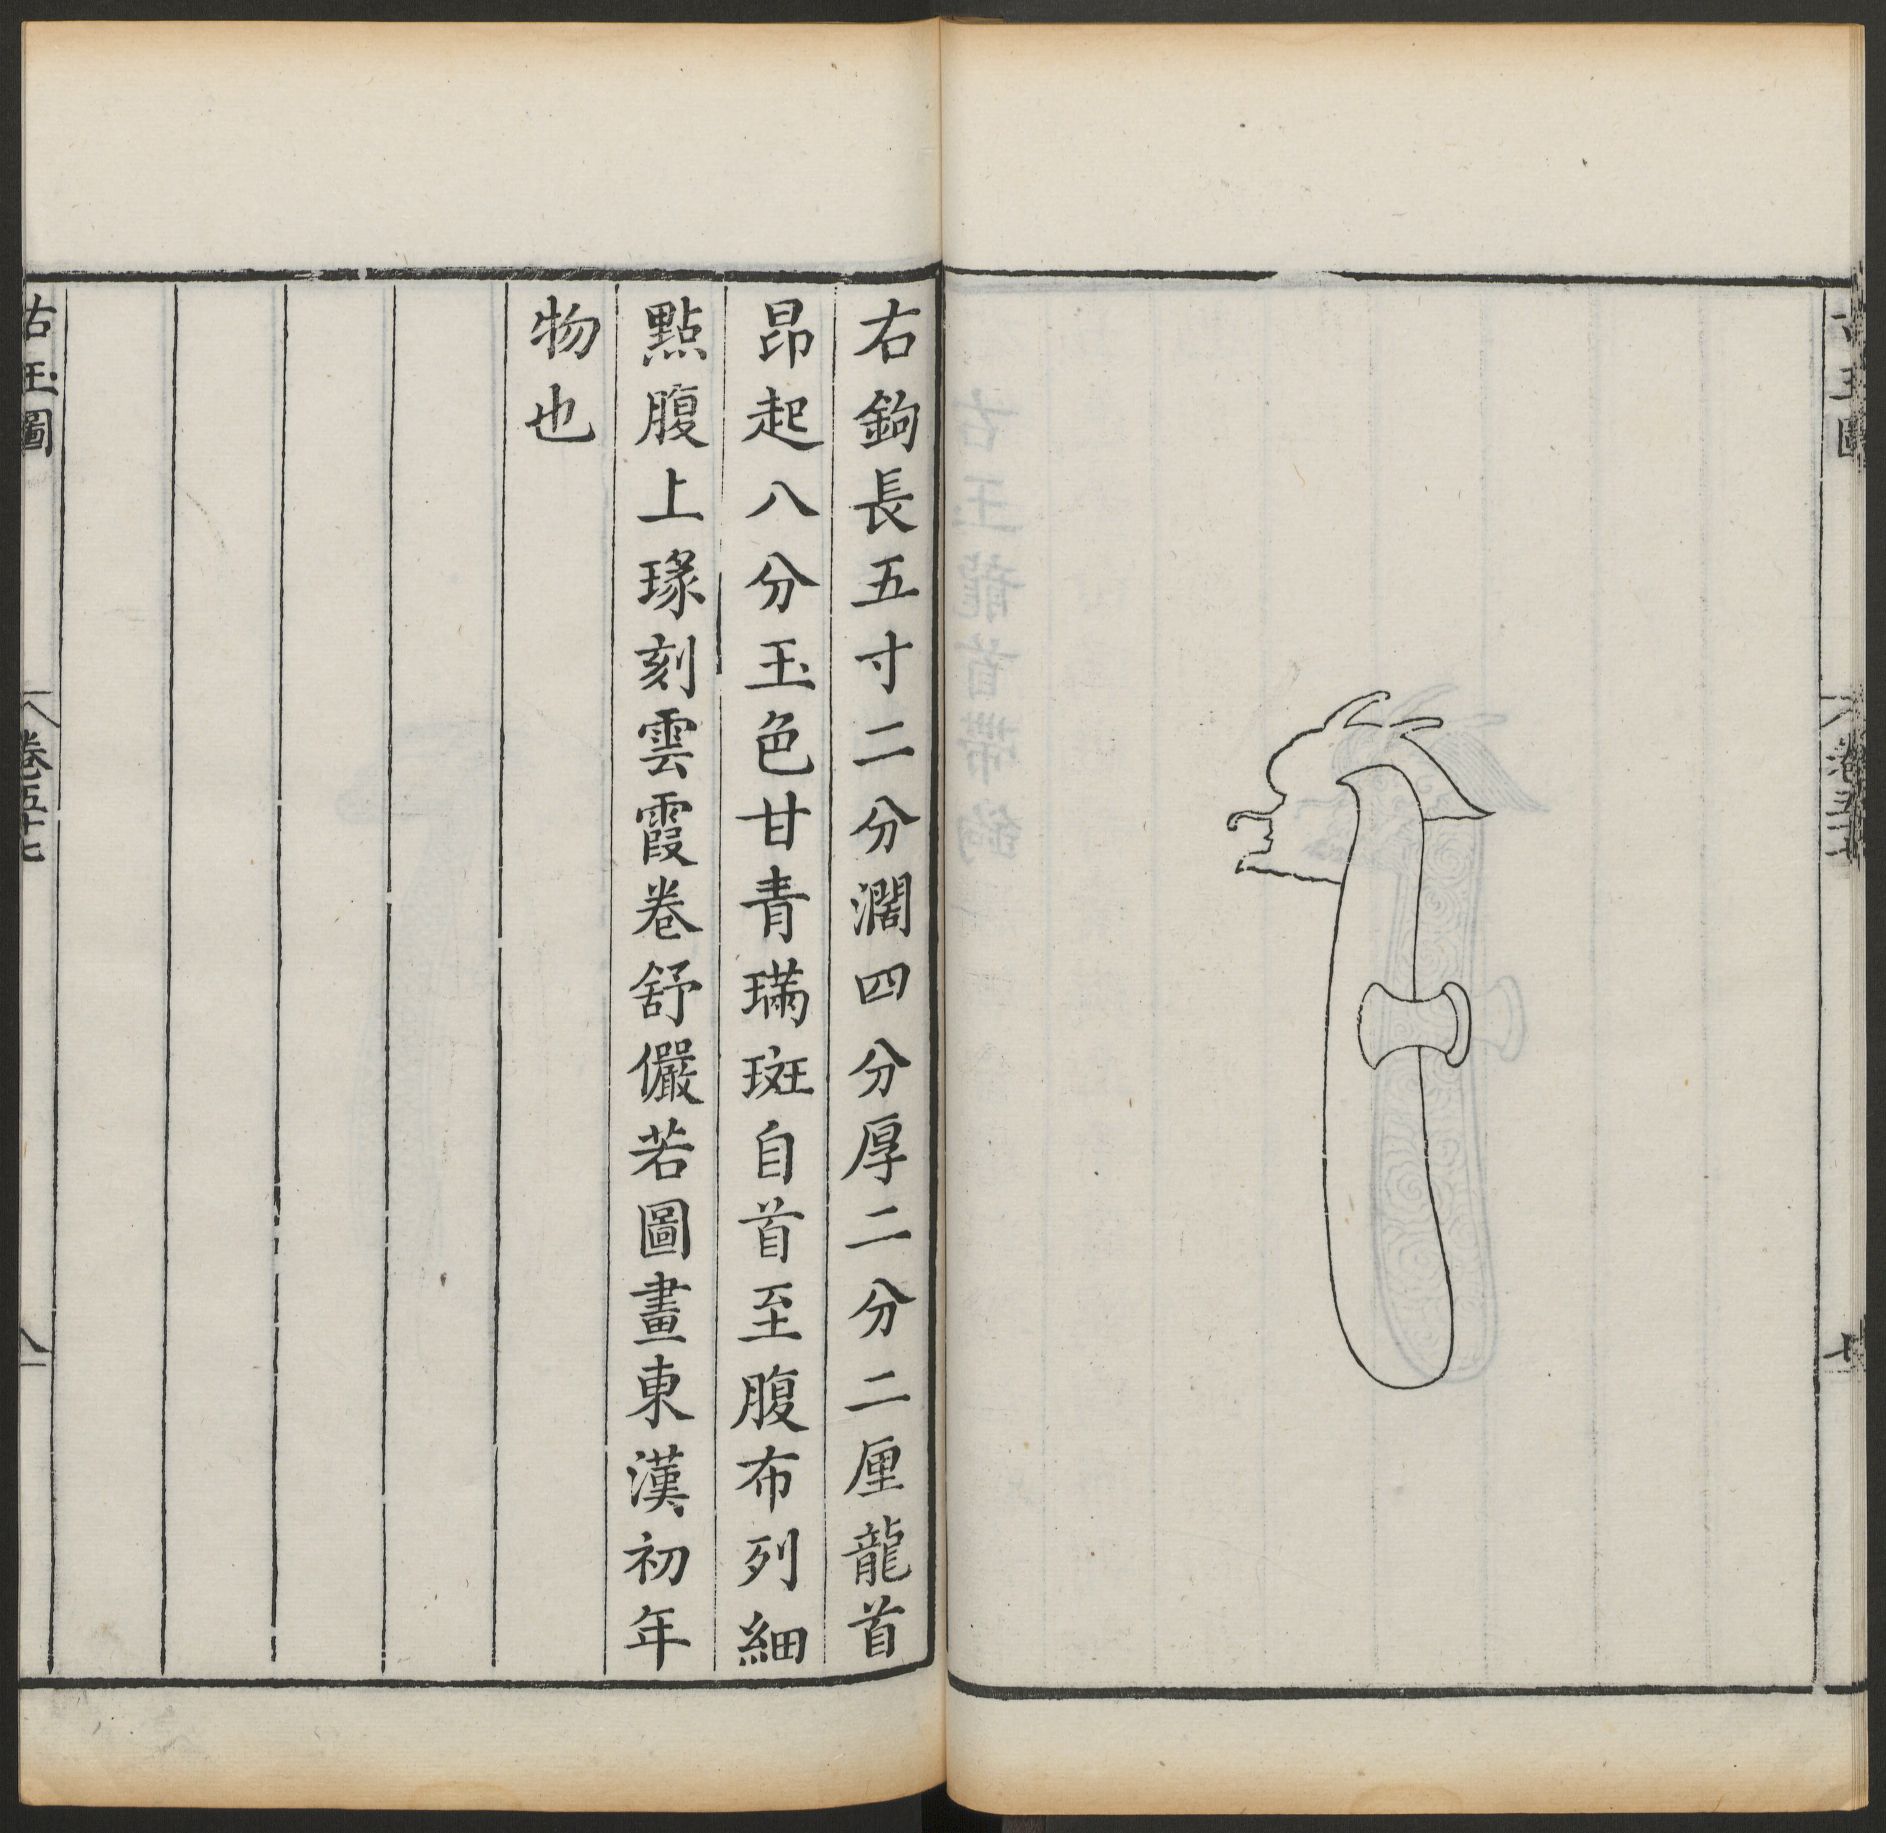 古玉圖
卷五十七
七
右鉤長五寸二分濶四分厚二分二厘龍首
昂起八分玉色甘青璊斑自首至腹布列細
點腹上瑑刻雲霞卷舒儼若圖畫東漢初年
物也
古玉圖
卷五十七
八